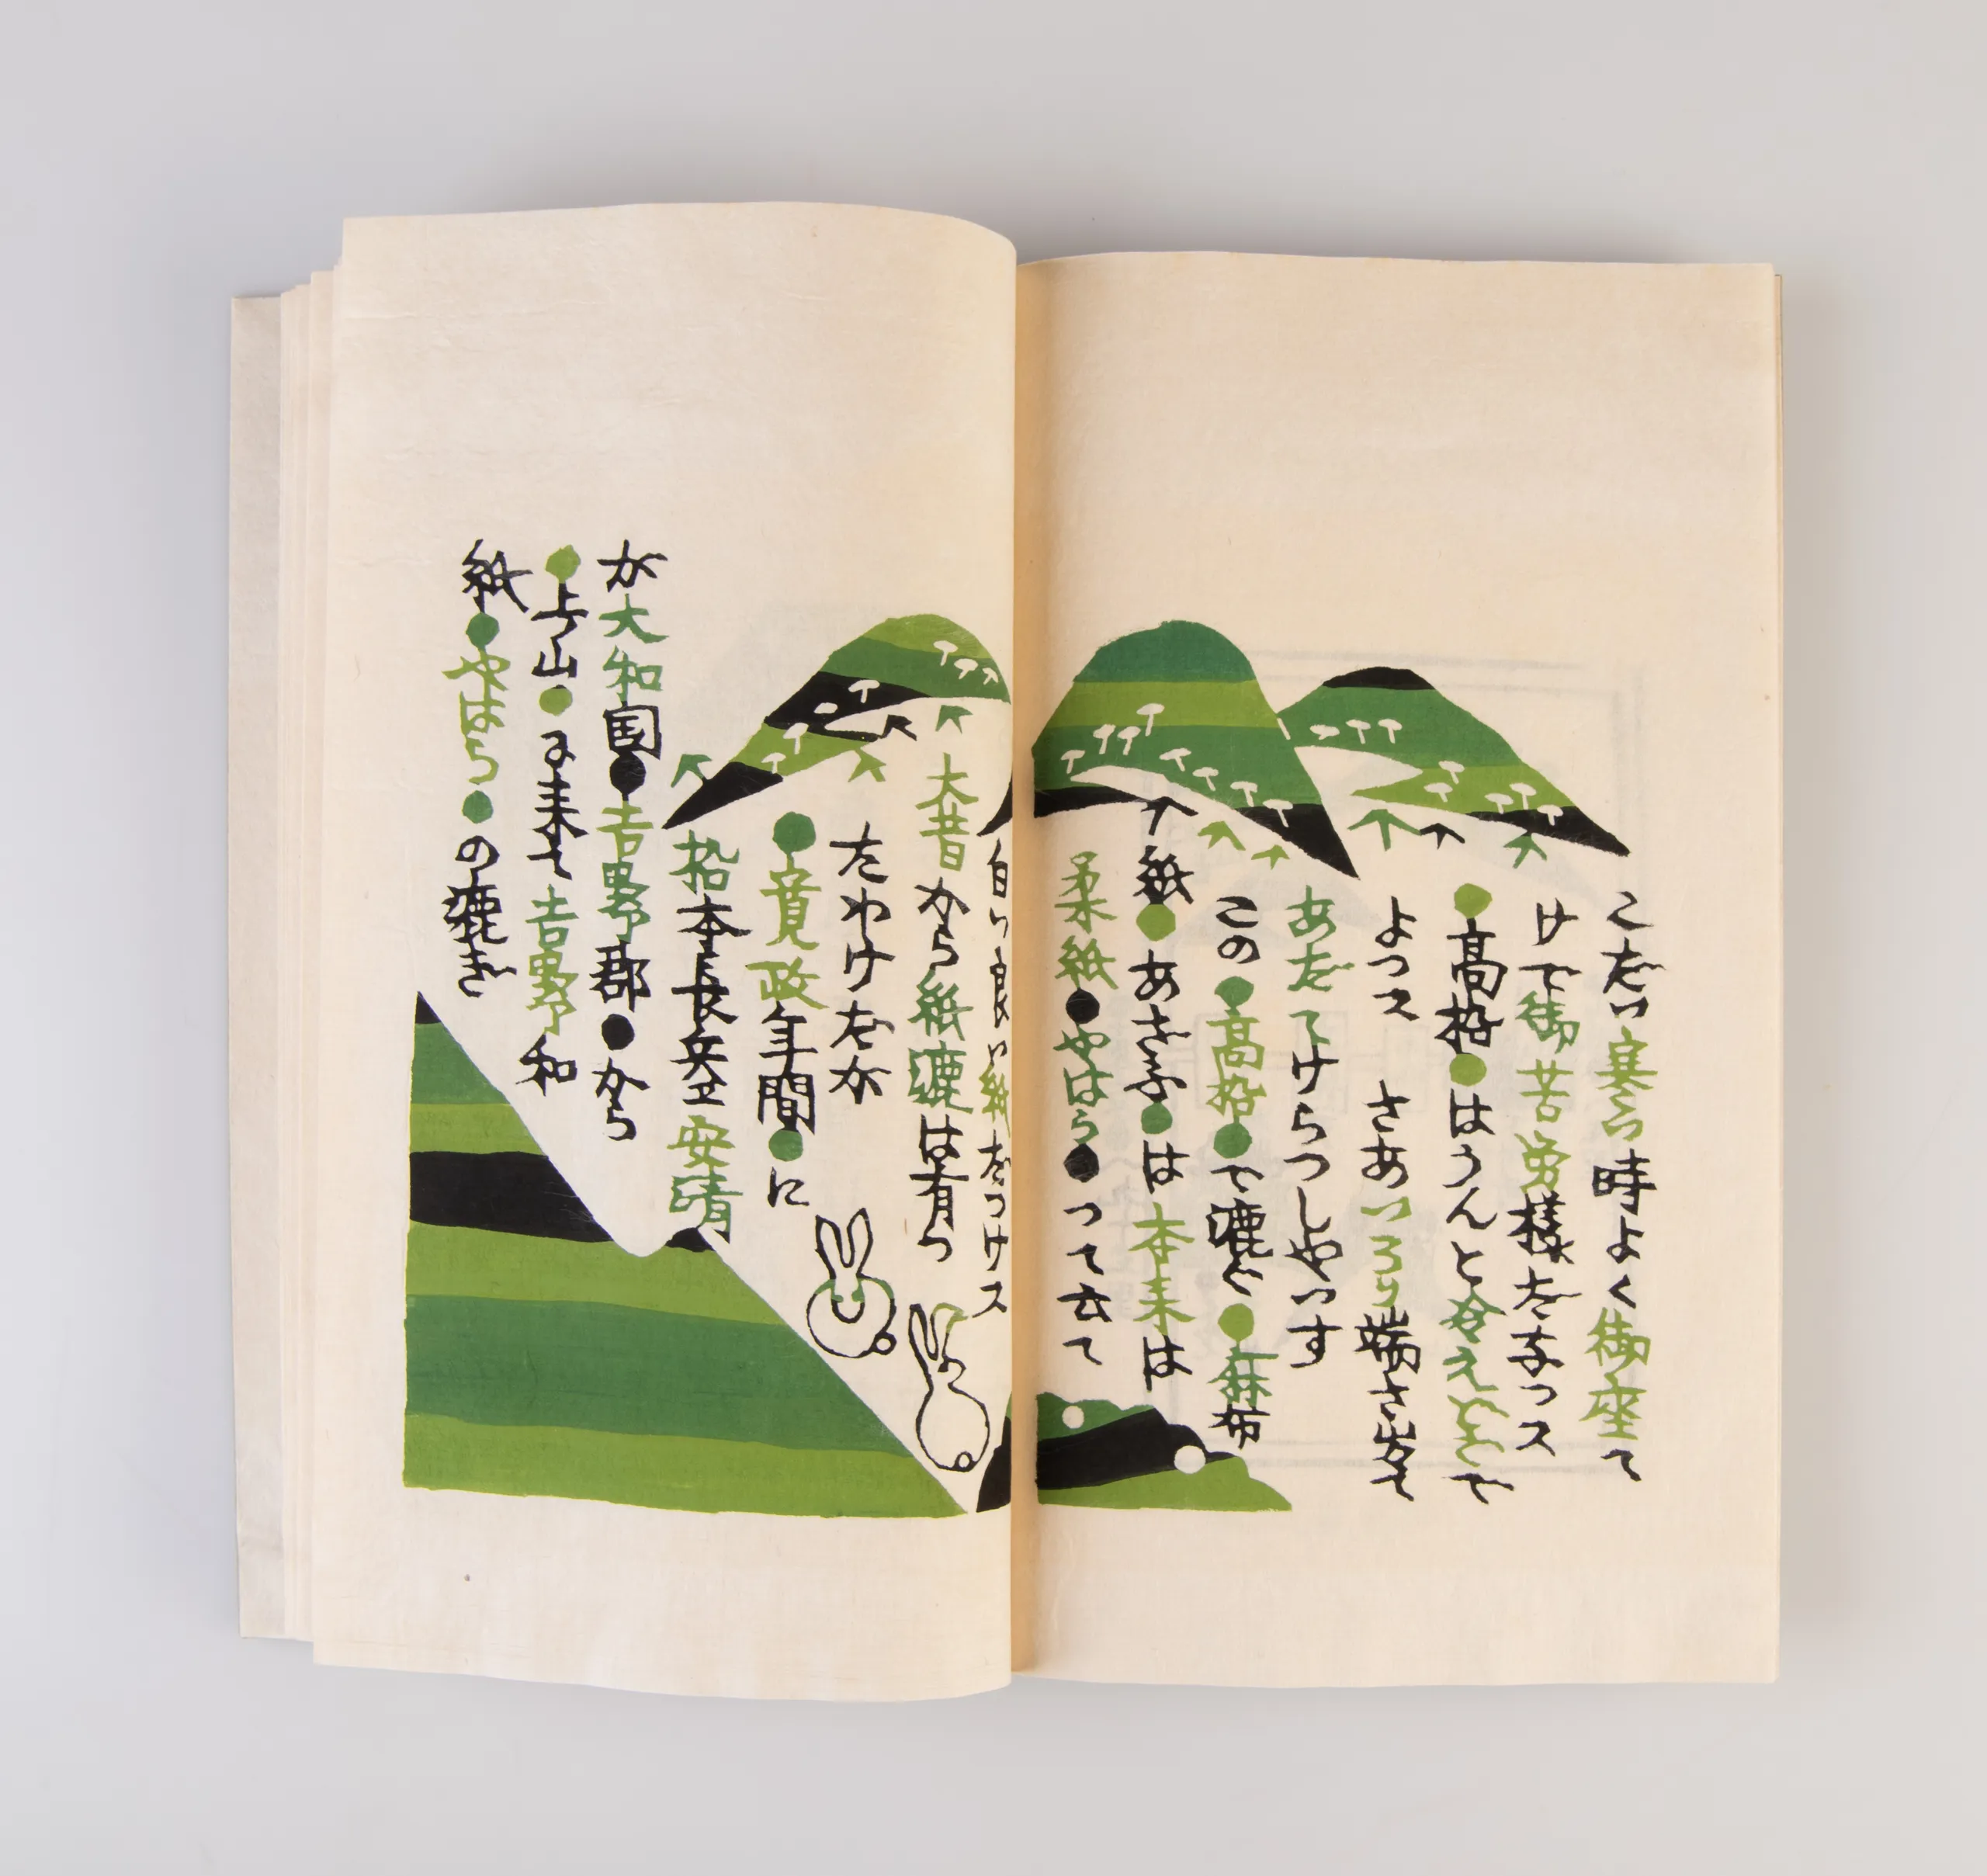 こだい寒い時よく御座て
けで御苦労様だなっス
●高松●はうんと冷えどこで
よっス　さあいろり端さ
あだてけらっしやいす
この●高松●で漉ぐ●麻布
紙●あさふ●は本来は
柔紙●やはら●って云て
白い良い紙だっけス
大昔から紙漉は有っ
たわけだが
●寛政年間●に
松本長兵エ安晴
が大和国●吉野郡●から
●上山●に来て吉野和
紙●やはら●の漉ぎ